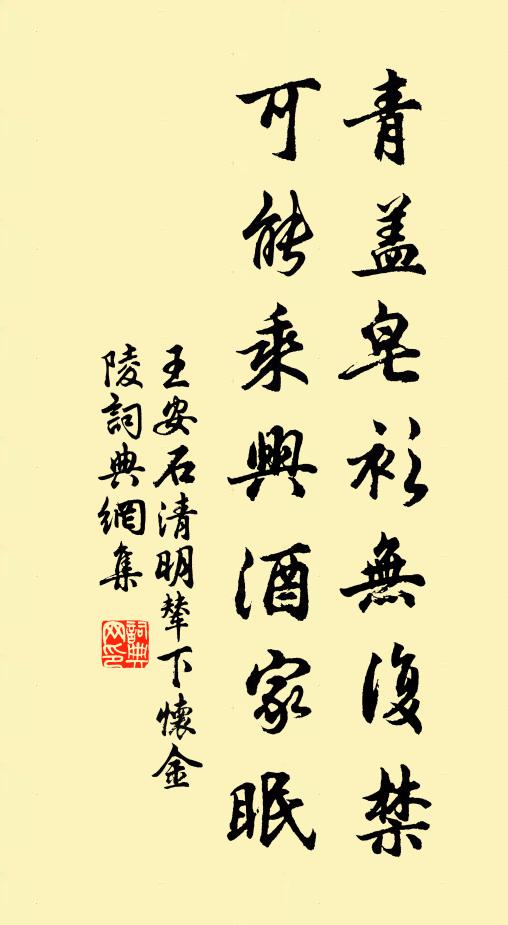 青蓋皂衫無復禁
可能乘興酒家眠
王安石清明輦下懷金
陵詞典網集
詞典
网印